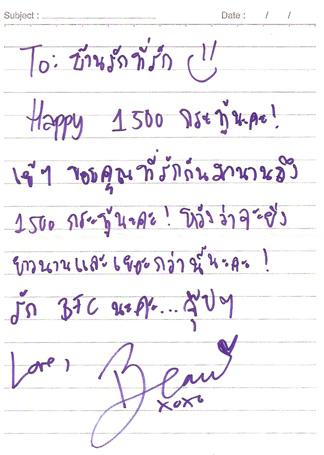 Subject : Date : / /
To: บ้านรักที่รัก
Happy 1500 กระทู้นะคะ!
เย้ๆ ขอบคุณที่รักกันมานานถึง
1500 กระทู้นะคะ! หวังว่าจะยิ่ง
ยาวนานและเยอะกว่านี้นะคะ!
รัก BFC นะคะ... จุ๊ปๆ
Love,
Beau
xoxo